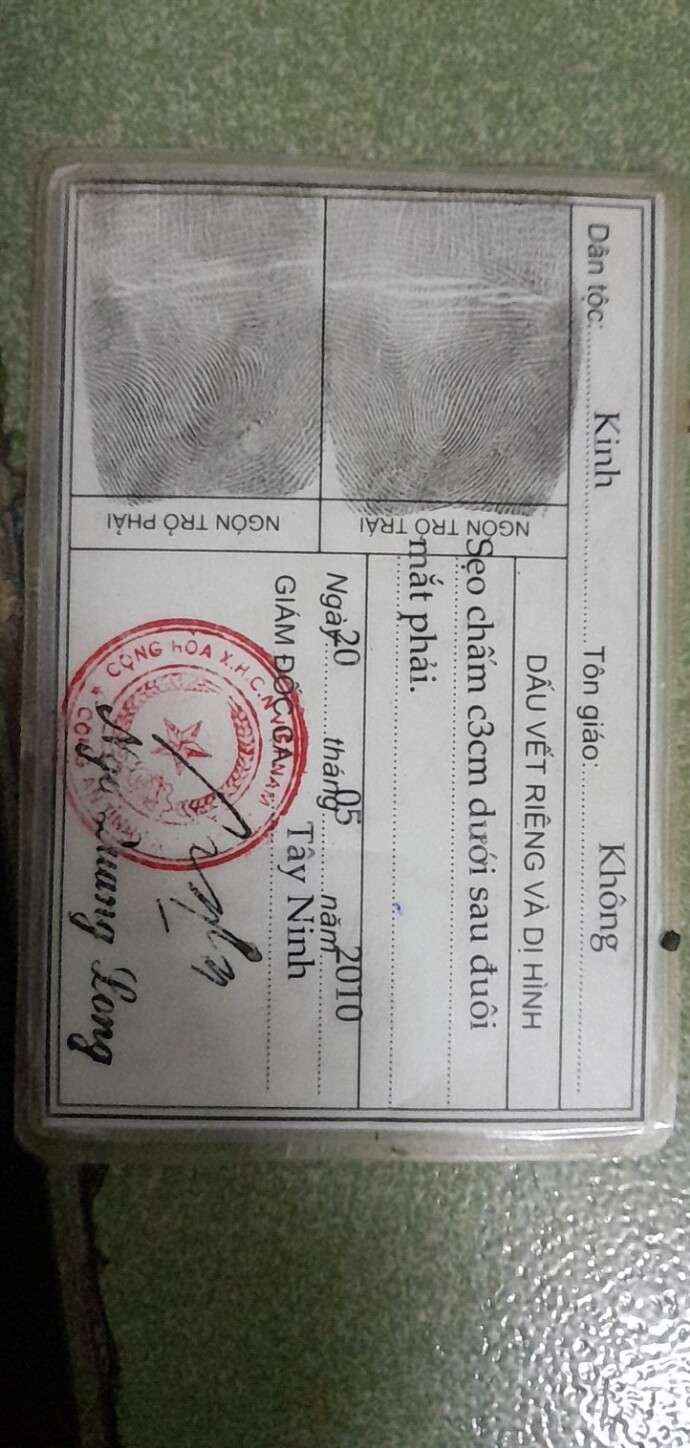 Dân tộc: Kinh Tôn giáo: Không
NGÓN TRỎ TRÁI
NGÓN TRỎ PHẢI
DẤU VẾT RIÊNG VÀ DỊ HÌNH
Sẹo chấm c3cm dưới sau đuôi
mắt phải.
Ngày 20 tháng 05 năm 2010
GIÁM ĐỐC CA Tây Ninh
CỘNG HÒA X.H.C.N VIỆT NAM
CÔNG AN TỈNH
Quang Long